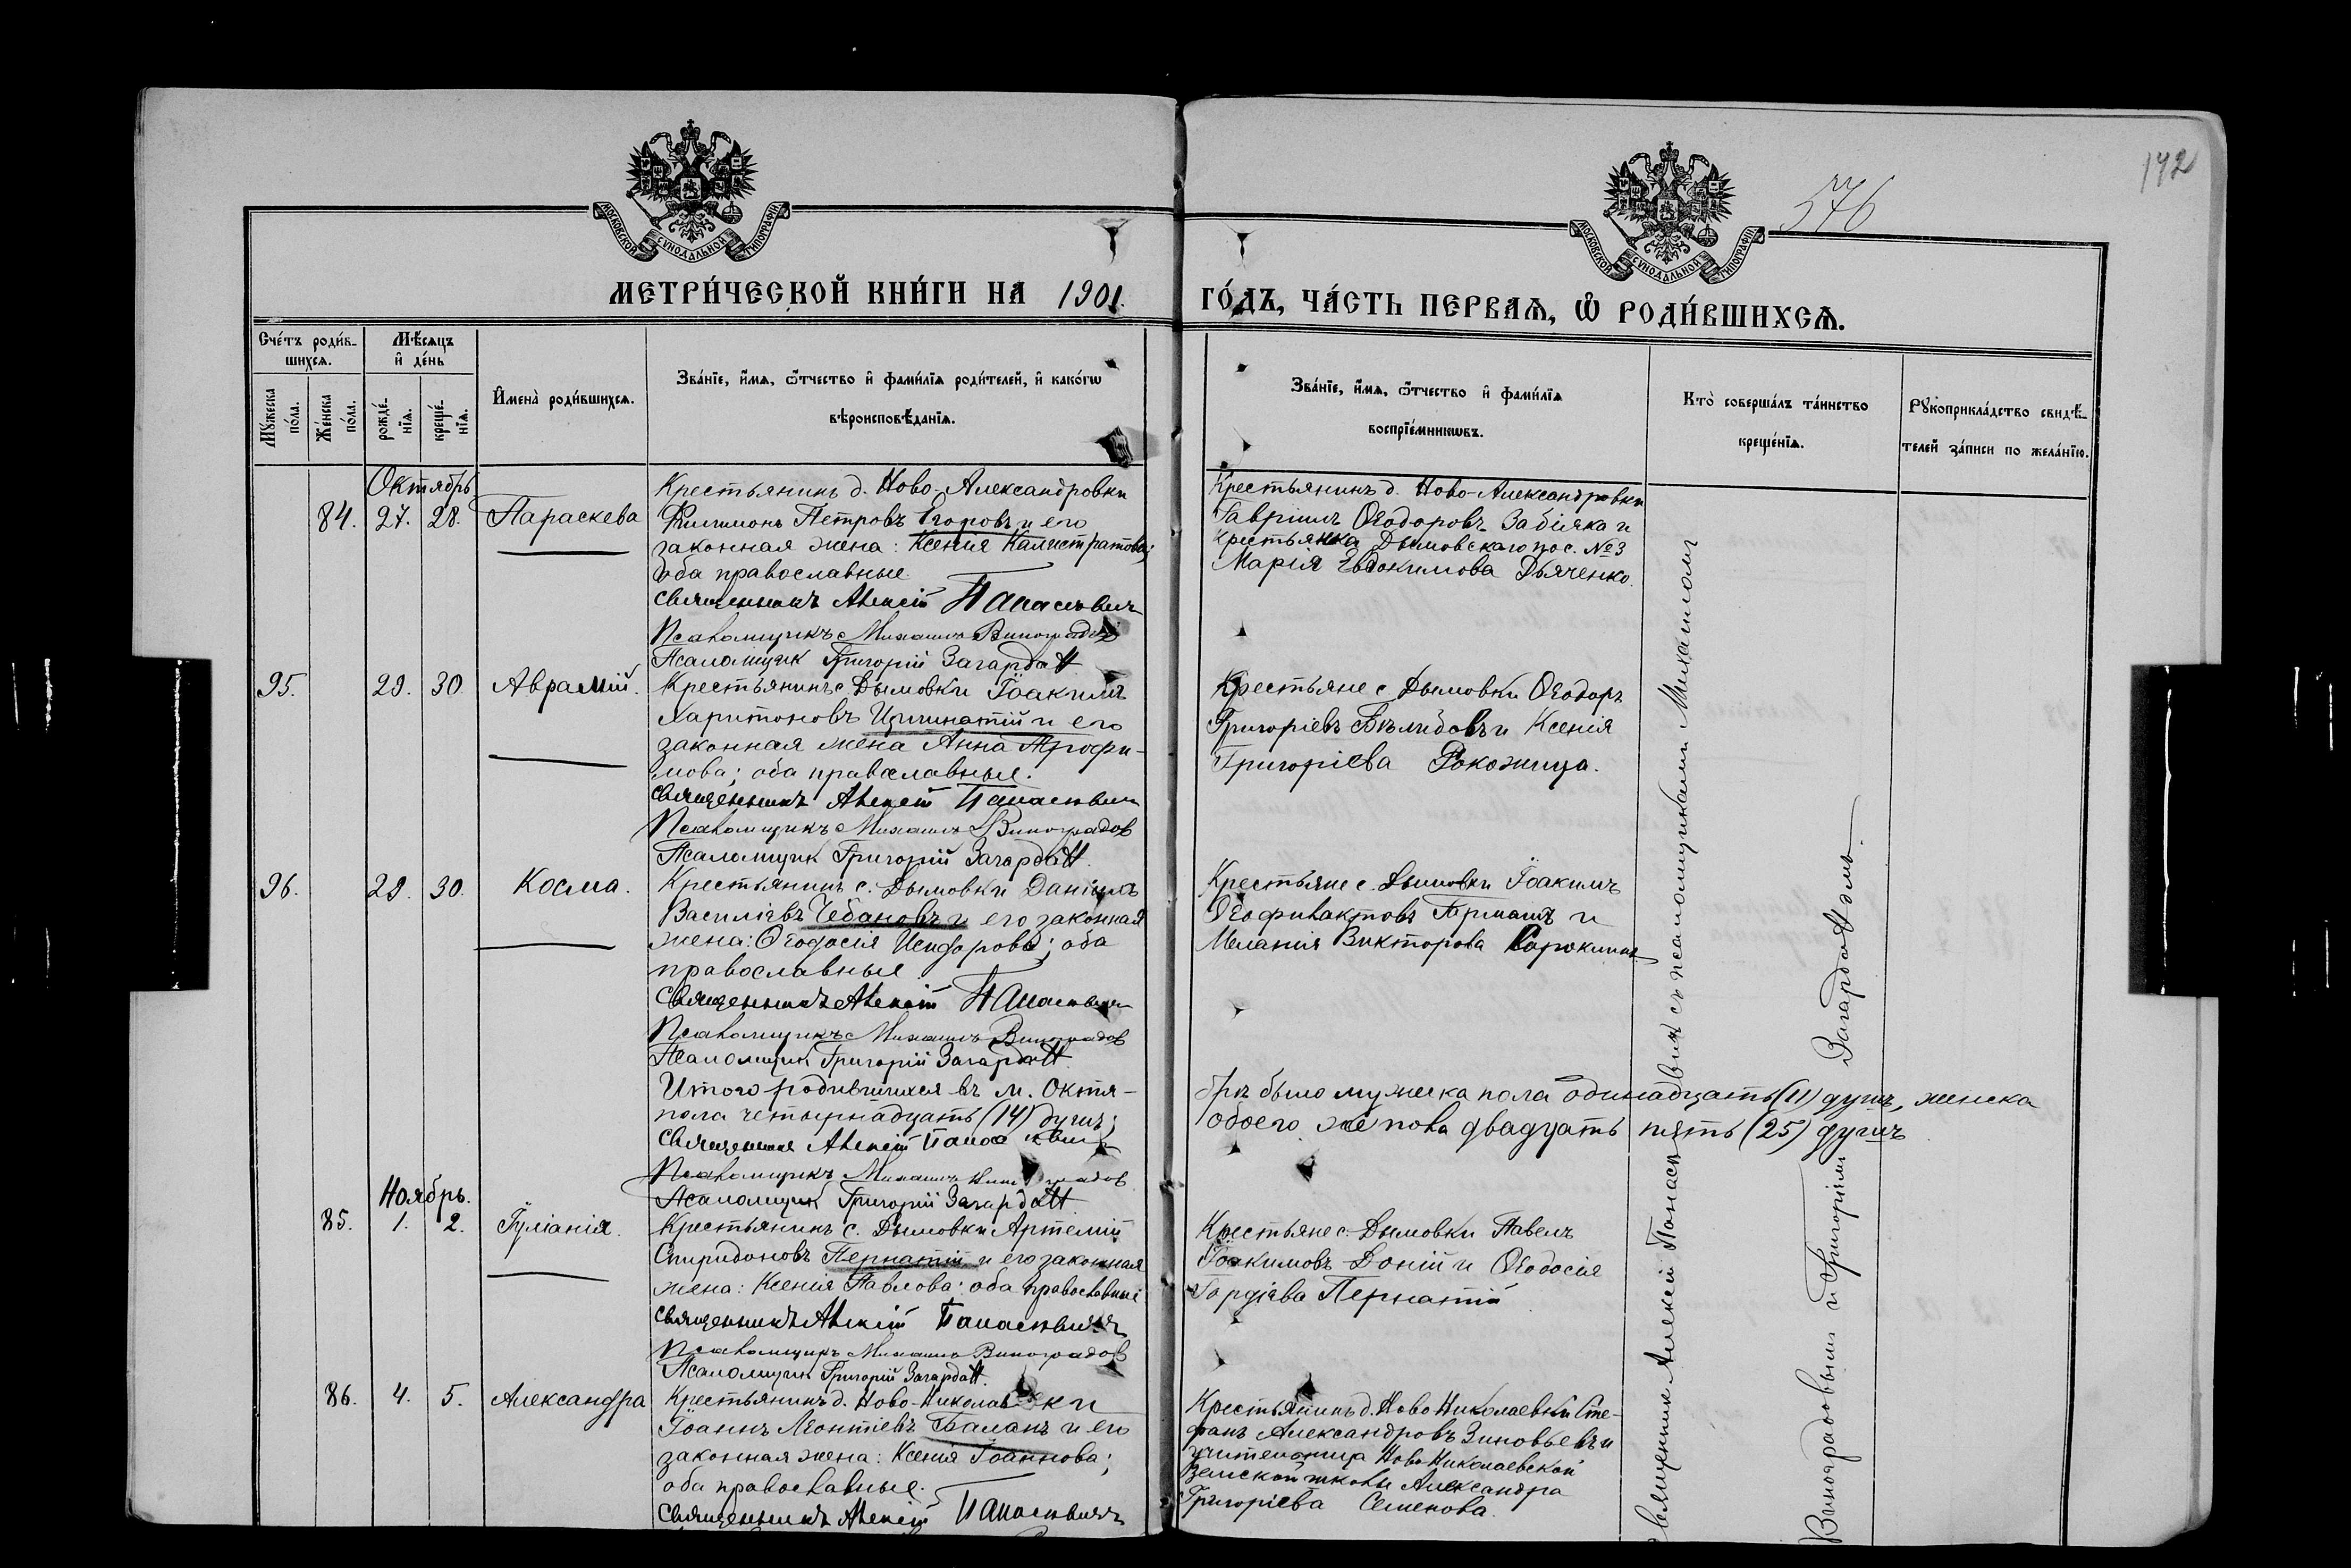 142
576
МОСКОВСКОЙ СѴНОДАЛЬНОЙ ТИПОГРАФІИ
МОСКОВСКОЙ СѴНОДАЛЬНОЙ ТИПОГРАФІИ
МЕТРИ́ЧЕСКОЙ КНИ́ГИ НА 1901. ГО́ДЪ, ЧА́СТЬ ПЕРВАѦ, Ѡ РОДИ́ВШИХСѦ.
Сче́тъ роди́в-
шихсѧ.
Мѣ́сѧцъ
и де́нь
Мꙋжеска
по́ла.
Же́нска
по́ла.
рожде́-
нїѧ.
креще́-
нїѧ.
Имена̀ роди́вшихсѧ.
Зва́нїе, и́мѧ, ѻ́тчество и фами́лїѧ роди́телей, и како́гѡ
вѣроисповѣ́данїѧ.
Зва́нїе, и́мѧ, ѻ́тчество и фами́лїѧ
воспрїе́мникѡвъ.
Кто̀ соверша́лъ та́инство
креще́нїѧ.
Рꙋкоприкла́дство свидѣ́-
телей за́писи по жела́нїю.
Октябрь
84. 27. 28. Параскева
Крестьянинъ д. Ново-Александровки
Филимонъ Петровъ Егоровъ и его
законная жена: Ксенія Калистратова;
оба православные.
Священникъ Алексій Панасевич
Псаломщикъ Михаилъ Виноградов
Псаломщик Григорій Загардатт
Крестьянинъ д. Ново-Александровки
Гавріилъ Ѳеодоровъ Забіяка и
крестьянка Дымовскаго пос. №3
Марія Евдокимова Дьяченко.
95. 29. 30. Аврамій.
Крестьянинъ с. Дымовки Іоакимъ
Харитоновъ Цигинатій и его
законная жена Анна Трофи-
мова; оба православные.
Священникъ Алексій Панасевич
Псаломщикъ Михаилъ Виноградов
Псаломщик Григорій Загардатт.
Крестьяне с. Дымовки Ѳеодоръ
Григоріевъ и Ксенія
Григоріева Рокожица.
96. 29. 30. Косма.
Крестьянинъ с. Дымовки Даніилъ
Василіевъ Чебановъ и его законная
жена: Ѳеодосія Исидорова; оба
православные.
Священникъ Алексій Панасевич
Псаломщикъ Михаилъ Виноградов
Псаломщик Григорій Загардатт.
Крестьяне с. Дымовки Іоакимъ
Ѳеофилактовъ и
Меланія Викторова Сорокина.
Итого родившихся въ м. Октя-
брѣ было мужеска пола одинадцать (11) душъ, женска
пола четырнадцать (14) душъ;
обоего же пола двадцать пять (25) душъ
Священник Алексій Панасевич
Псаломщикъ Михаилъ Виноградов
Псаломщик Григорій Загардатт.
Ноябрь.
85. 1. 2. Іуліанія.
Крестьянинъ с. Дымовки Артемій
Спиридоновъ Пернатій и его законная
жена: Ксенія Павлова: оба православные
Священникъ Алексій Панасевич
Псаломщикъ Михаилъ Виноградов
Псаломщик Григорій Загардатт.
Крестьяне с. Дымовки Павелъ
Іоакимовъ Доній и Ѳеодосія
Гордіева Пернатій
86. 4. 5. Александра
Крестьянинъ д. Ново-Николаевки
Іоаннъ Леонтіевъ Баланъ и его
законная жена: Ксенія Іоаннова;
оба православные.
Священникъ Алексій Панасевич
Крестьянинъ д. Ново Николаевки Сте-
фанъ Александровъ Зиновьевъ и
учительница Ново-Николаевской
Земской школы Александра
Григоріева Семенова.
Священник Алексій Панасевич съ псаломщиками Михаиломъ
Виноградовымъ и Григоріемъ Загардаттомъ.